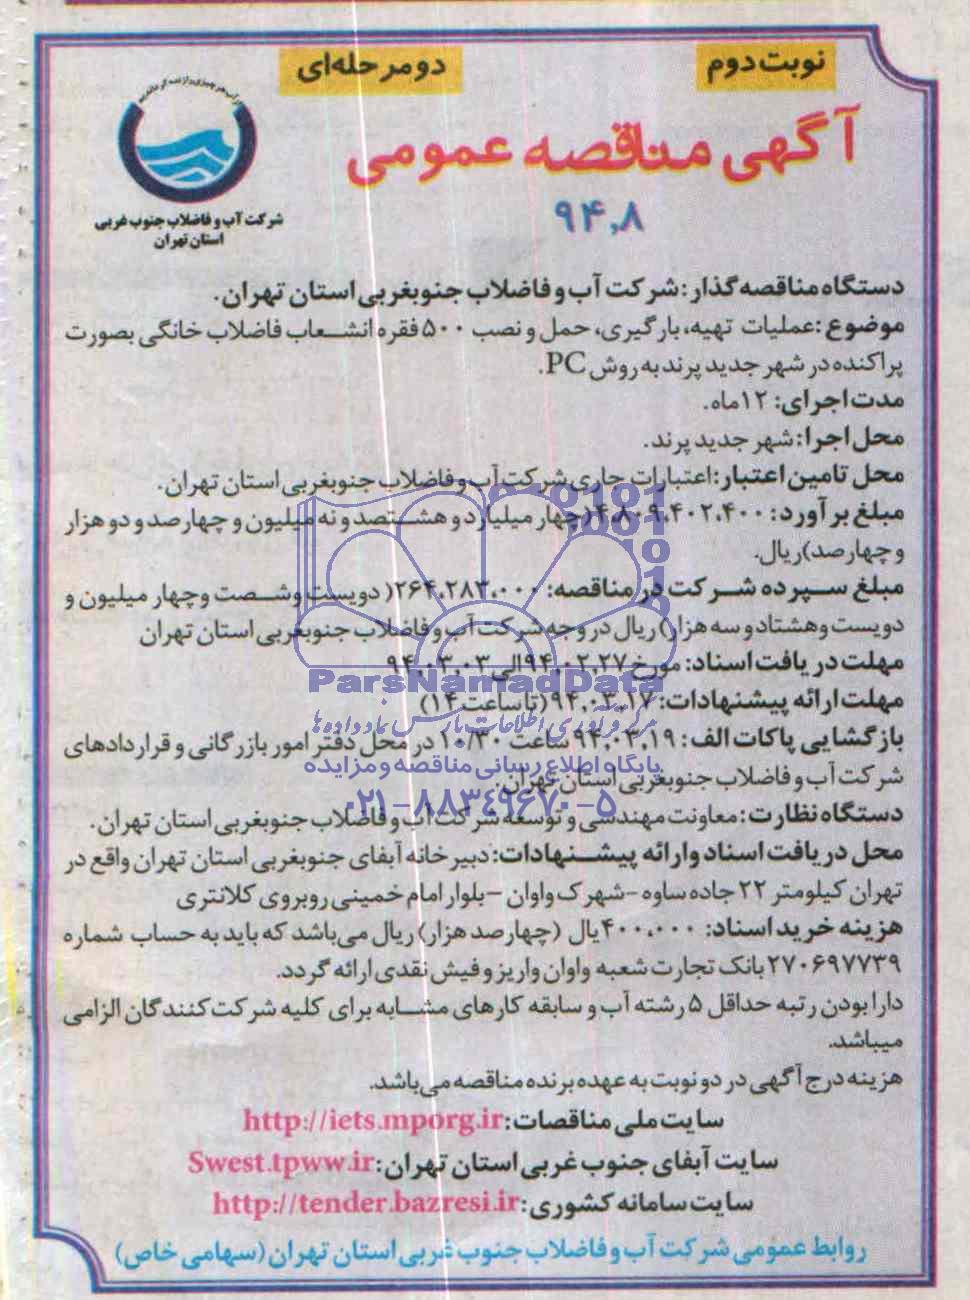 نوبت دوم
دو مرحله‌ای
آگهی مناقصه عمومی
۹۴،۸
شرکت آب و فاضلاب جنوب غربی
استان تهران
دستگاه مناقصه گذار: شرکت آب و فاضلاب جنوبغربی استان تهران.
موضوع: عملیات تهیه، بارگیری، حمل و نصب ۵۰۰ فقره انشعاب فاضلاب خانگی بصورت
پراکنده در شهر جدید پرند به روش PC.
مدت اجرای: ۱۲ ماه.
محل اجرا: شهر جدید پرند.
محل تامین اعتبار: اعتبارات جاری شرکت آب و فاضلاب جنوبغربی استان تهران.
مبلغ برآورد: ۴،۸۰۹،۴۰۲،۴۰۰ (چهار میلیارد و هشتصد و نه میلیون و چهارصد و دو هزار
و چهارصد) ریال.
مبلغ سپرده شرکت در مناقصه: ۲۶۴،۲۸۳،۰۰۰ (دویست وشصت وچهار میلیون و
دویست وهشتاد و سه هزار) ریال در وجه شرکت آب و فاضلاب جنوبغربی استان تهران
مهلت دریافت اسناد: مورخ ۹۴،۰۲،۲۷ الی ۹۴،۰۳،۰۳
مهلت ارائه پیشنهادات: ۹۴،۰۳،۱۷ (تا ساعت ۱۴)
بازگشایی پاکات الف: ۹۴،۰۳،۱۹ ساعت ۱۰/۳۰ در محل دفتر امور بازرگانی و قراردادهای
شرکت آب و فاضلاب جنوبغربی استان تهران.
دستگاه نظارت: معاونت مهندسی و توسعه شرکت آب و فاضلاب جنوبغربی استان تهران.
محل دریافت اسناد وارائه پیشنهادات: دبیرخانه آبفای جنوبغربی استان تهران واقع در
تهران کیلومتر ۲۲ جاده ساوه - شهرک واوان - بلوار امام خمینی روبروی کلانتری
هزینه خرید اسناد: ۴۰۰،۰۰۰ یال (چهارصد هزار) ریال می‌باشد که باید به حساب شماره
۲۷۰۶۹۷۷۳۹ بانک تجارت شعبه واوان واریز و فیش نقدی ارائه گردد.
دارا بودن رتبه حداقل ۵ رشته آب و سابقه کارهای مشابه برای کلیه شرکت کنندگان الزامی
میباشد.
هزینه درج آگهی در دو نوبت به عهده برنده مناقصه می‌باشد.
سایت ملی مناقصات: http://iets.mporg.ir
سایت آبفای جنوب غربی استان تهران: Swest.tpww.ir
سایت سامانه کشوری: http://tender.bazresi.ir
روابط عمومی شرکت آب و فاضلاب جنوب غربی استان تهران (سهامی خاص)
ParsNamadData
مرکز فرآوری اطلاعات پارس نماد داده‌ها
پایگاه اطلاع رسانی مناقصه و مزایده
۰۲۱-۸۸۳۴۹۶۷۰-۵